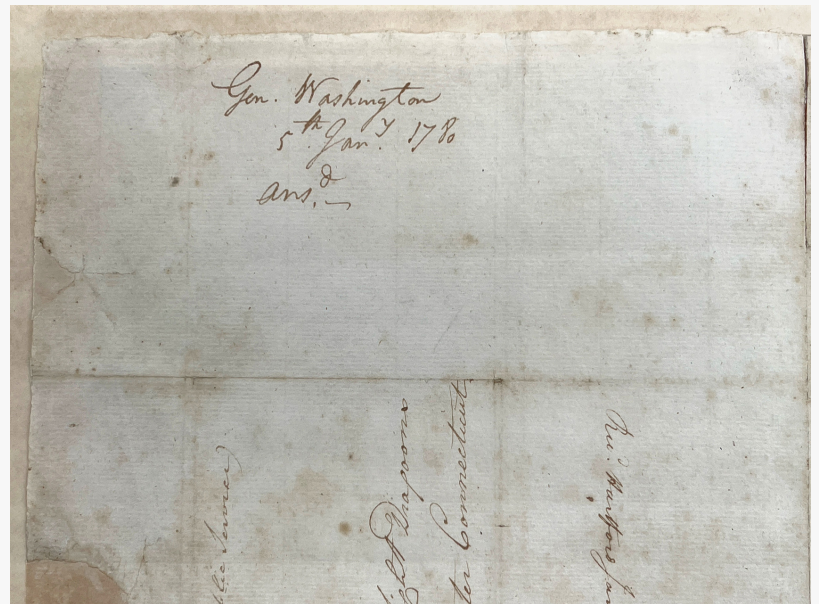 Gen. Washington
5th Jany. 1780
ansd.
Service)
Dragoons
Connecticut
Hartford Jan